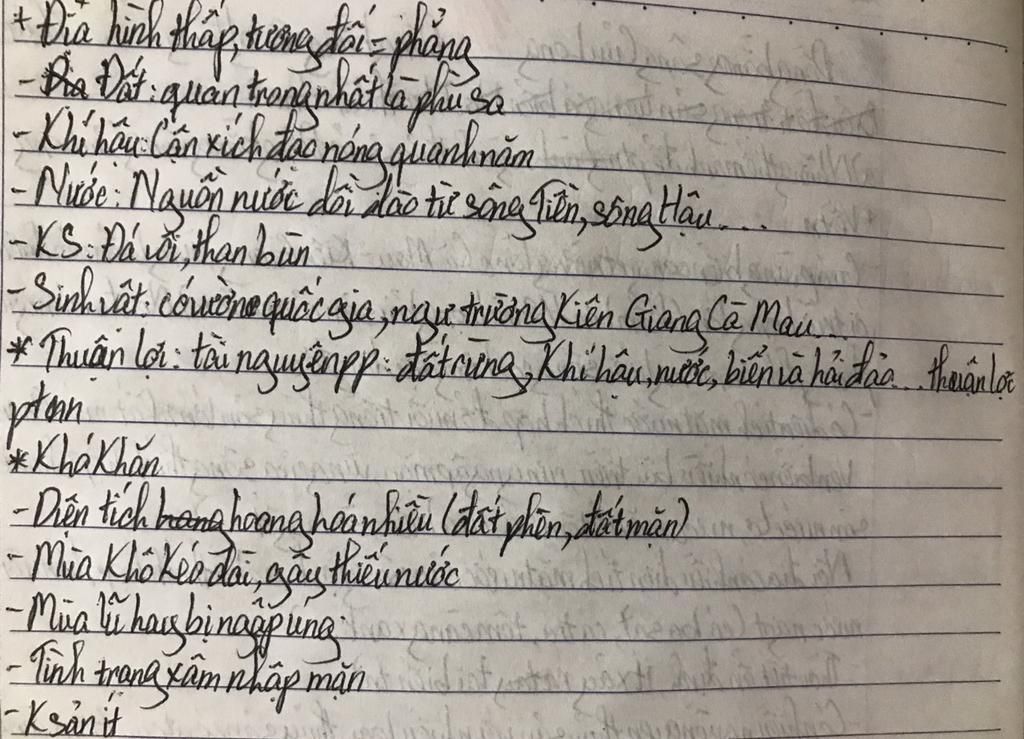 + Địa hình thấp, tương đối = phẳng
- Địa Đất: quan trọng nhất là phù sa
- Khí hậu: Cận xích đạo nóng quanh năm
- Nước: Nguồn nước dồi dào từ sông Tiền, sông Hậu....
- KS: Đá vôi, than bùn
- Sinh vật: có vườn quốc gia, ngư trường Kiên Giang Cà Mau...
* Thuận lợi: tài nguyên pp: đất rừng, khí hậu, nước, biển và hải đảo... thuận lợi
ptnn
* Khó Khăn
- Diện tích hoang hoang hoá nhiều (đất phèn, đất mặn)
- Mùa khô kéo dài, gây thiếu nước
- Mùa lũ hay bị ngập úng
- Tình trạng xâm nhập mặn
- K sản ít